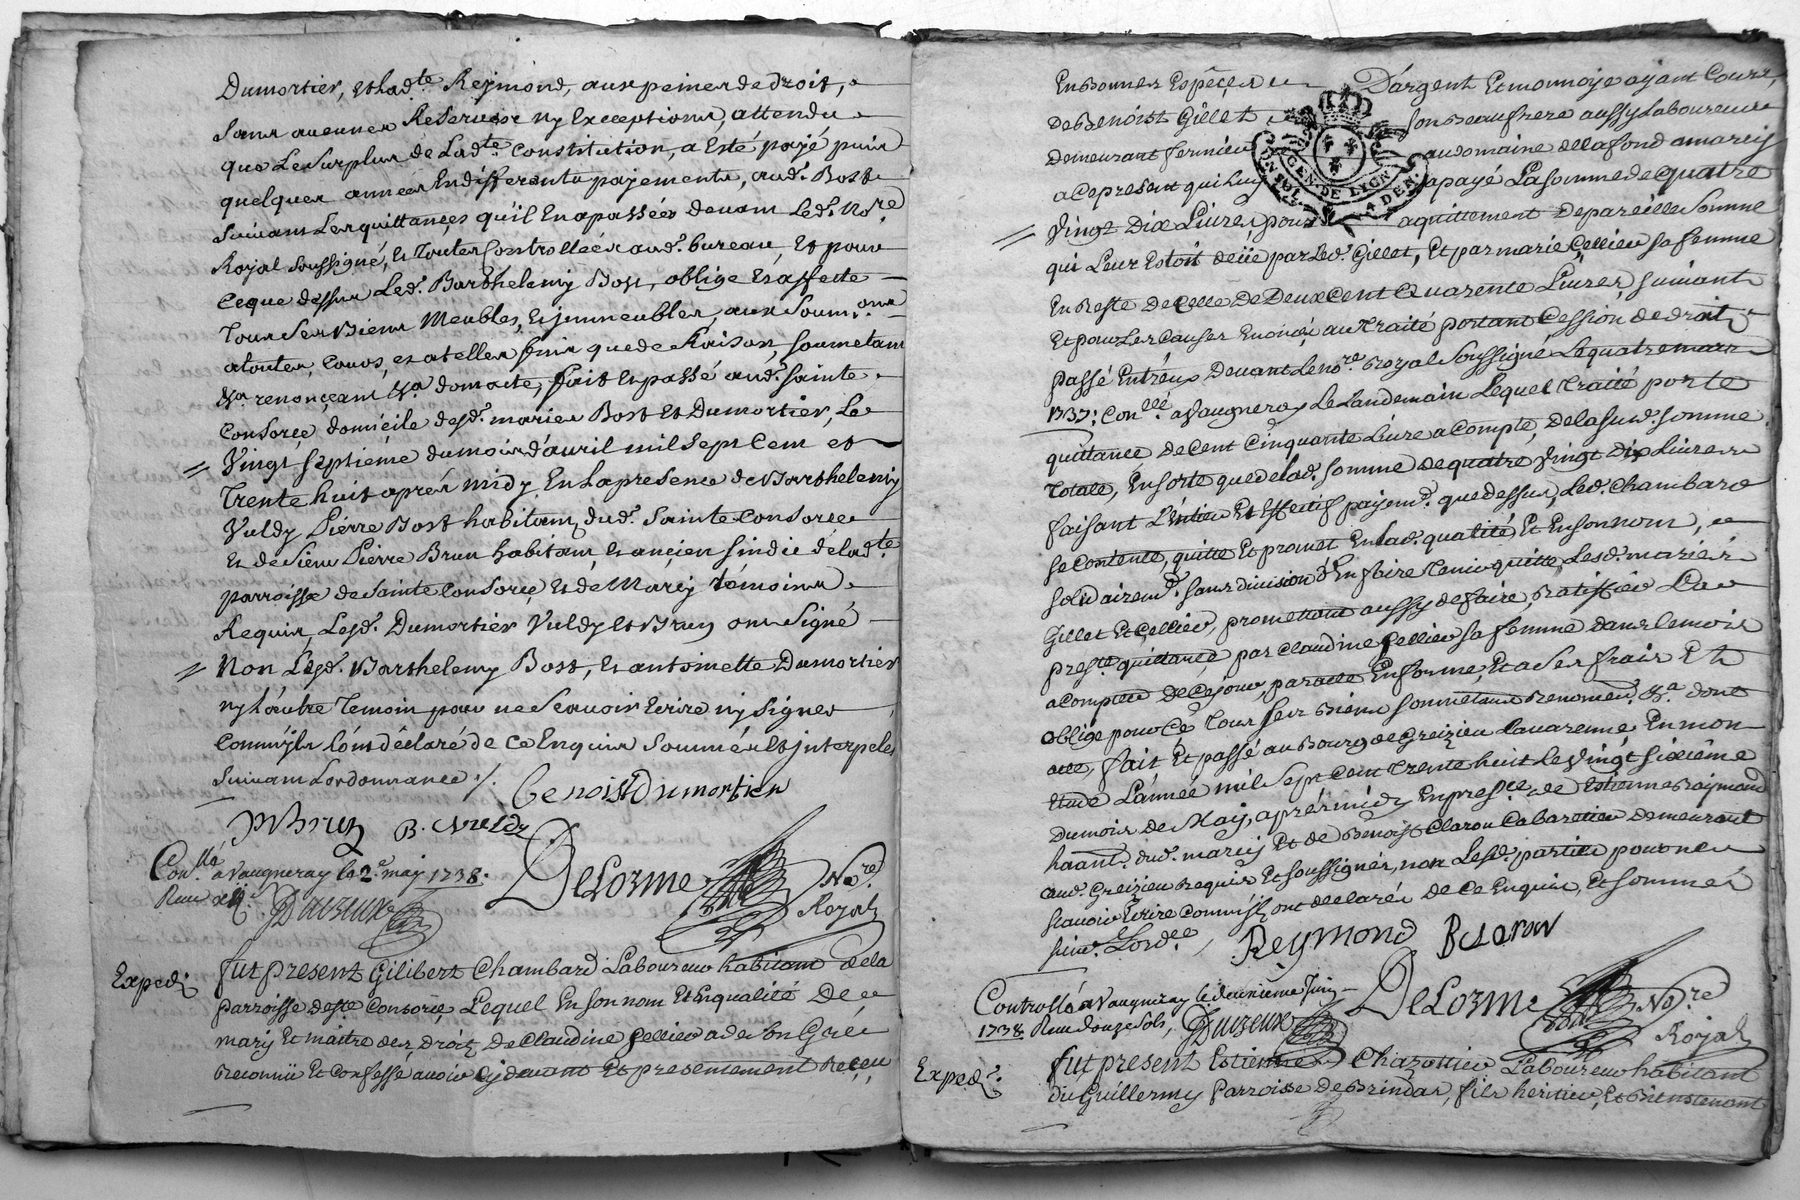 Dumortier, et lad.te Reymond, aux peines de droit,
sans aucunes Reserves ny Exceptions, attendu
que Le surplus de Lad.te Constitution, a Esté payé puis
quelques années En differents payements, aud.t Bost
suivant Les quittances qu'il En a passées devant Led.t No.re
Royal soussigné, Et Toutes Controllées aud.t bureau Et pour
Ce que dessus Led.t Barthelemy Bost, oblige Et affecte
Tous Ses Biens Meubles, Et jmmeubles, aux Soum.ons
a toutes Cours, et a telles fins que de Raison, soumetant
&a renonçeant &a dont acte, fait Et passé aud.t Sainte
Consorçe domicile desd.s mariés Bost Et Dumortier, Le
Vingt septiéme du mois d'avril mil sept Cent et
Trente huit aprés midy En La presence de Barthelemy
Vuldy Pierre Bost habitans dud.t Sainte Consorce
Et de Sieur Pierre Brun habitant, Et ançien sindic de lad.te
parroisse de Sainte Consorçe Et de Marcy témoins
Requis, Lesd.s Dumortier Vuldy et Brun ont Signé
Non Lesd.s Barthelemy Bost, Et antoinette Dumortier
ny L'autre Temoin pour ne Scavoir Ecrire ny signer
Comm'jls L'ont déclaré de Ce Enquis Sommés Et jnterpelés
Suivant Lordonnance ./.
Benoist Dumortier
P Brun B. Vuldy
DeLorme No.re Royal
Con.llé a Vaugneray le 2.e may 1738.
Duzeux
Exped.
fut present Gilibert Chambard Laboureur habitant de la
parroisse de s.te Consorce, Lequel En son nom Et En qualité De
mary Et maitre des droits De Claudine Cellier a de son Gré
reconnü Et Confessé avoir Cy devant Et presentement Reçeu
En Bonnes Espéçes D'argent Et monnoye ayant Cours,
De Benoist Gillet son Beaufrere aussy Laboureur
Demeurant fermier au domaine de Lafond a marcy
a Ce present qui Luy a payé La somme de quatre
GEN. DE LYON
Vingt Dix Livres pour aquittement De pareille Somme
qui Leur Estoit deüe par Led.t Gillet, Et par marie Cellier sa femme
En Reste De Celle De Deux Cent Quarente Livres, suivant
Et pour Les Causes Enoncés au Traité portant Cession de droits
passé Entr'eux Devant Le no.re Royal Soussigné Le quatre mars
1737; Con.llé a Vaugneray Le Landemain Lequel Traité porte
quittance de Cent Cinquante Livre a Compte, de la susd.e somme
Totale, En sorte que de lad.e somme de quatre Vingt Dix Livres
faisant L'entier Et Effectif payem.t que dessus, Led.t Chambard
se Contente, quitte Et promet En lad.e qualité Et En son nom,
solidairem.t sans division d'En faire Tenir quitte, Lesd.s mariés
Gillet Et Cellier, promettant aussy de faire, Ratiffier La
pres.te quittance par Claudine Cellier sa femme dans le mois
a Compter de Ce jour par acte En forme, Et a Ses frais Et
oblige pour Cé Tous ses Biens soumettant Renoncent &a dont
acte, fait Et passé au Bourg de Greizieu Lavarenne En mon
Etude L'année mil Sept Cent Trente huit Le Vingt sixiéme
Du mois de May, aprés midy En pres.ce de Estienne Raymond
habit.t dud.t marcy Et de Benoist Claron Cabaretier demeurant
aud.t Greizieu Requis Et soussignés, non Lesd.s parties pour ne
scavoir Ecrire Comm'jls ont declarés de Ce Enquis, Et sommés
suiv.t Lord.ce
Reymond B Claron
DeLorme No.re Royal
Controllé a Vaugneray le deuxieme Juin
1738 Reçu Douze sols, Duzeux
Exped.
fut present Estienne Chazottier Laboureur habitant
du Guillermy Parroisse De Brindas, fils heritier, Et Bientenant